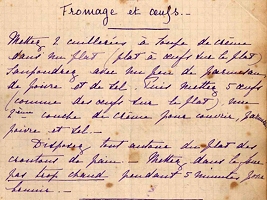 Fromage et œufs.
Mettez 2 cuillerées à soupe de crème
dans un plat (plat à œufs sur le plat)
Saupoudrez avec un peu de parmesan,
de poivre et de sel. Puis mettez 5 œufs
(comme des œufs sur le plat) une
2ème couche de crème pour couvrir,
poivre et sel.
Disposez tout autour du plat des
croutons de pain. Mettez dans le four
pas trop chaud pendant 5 minutes pour